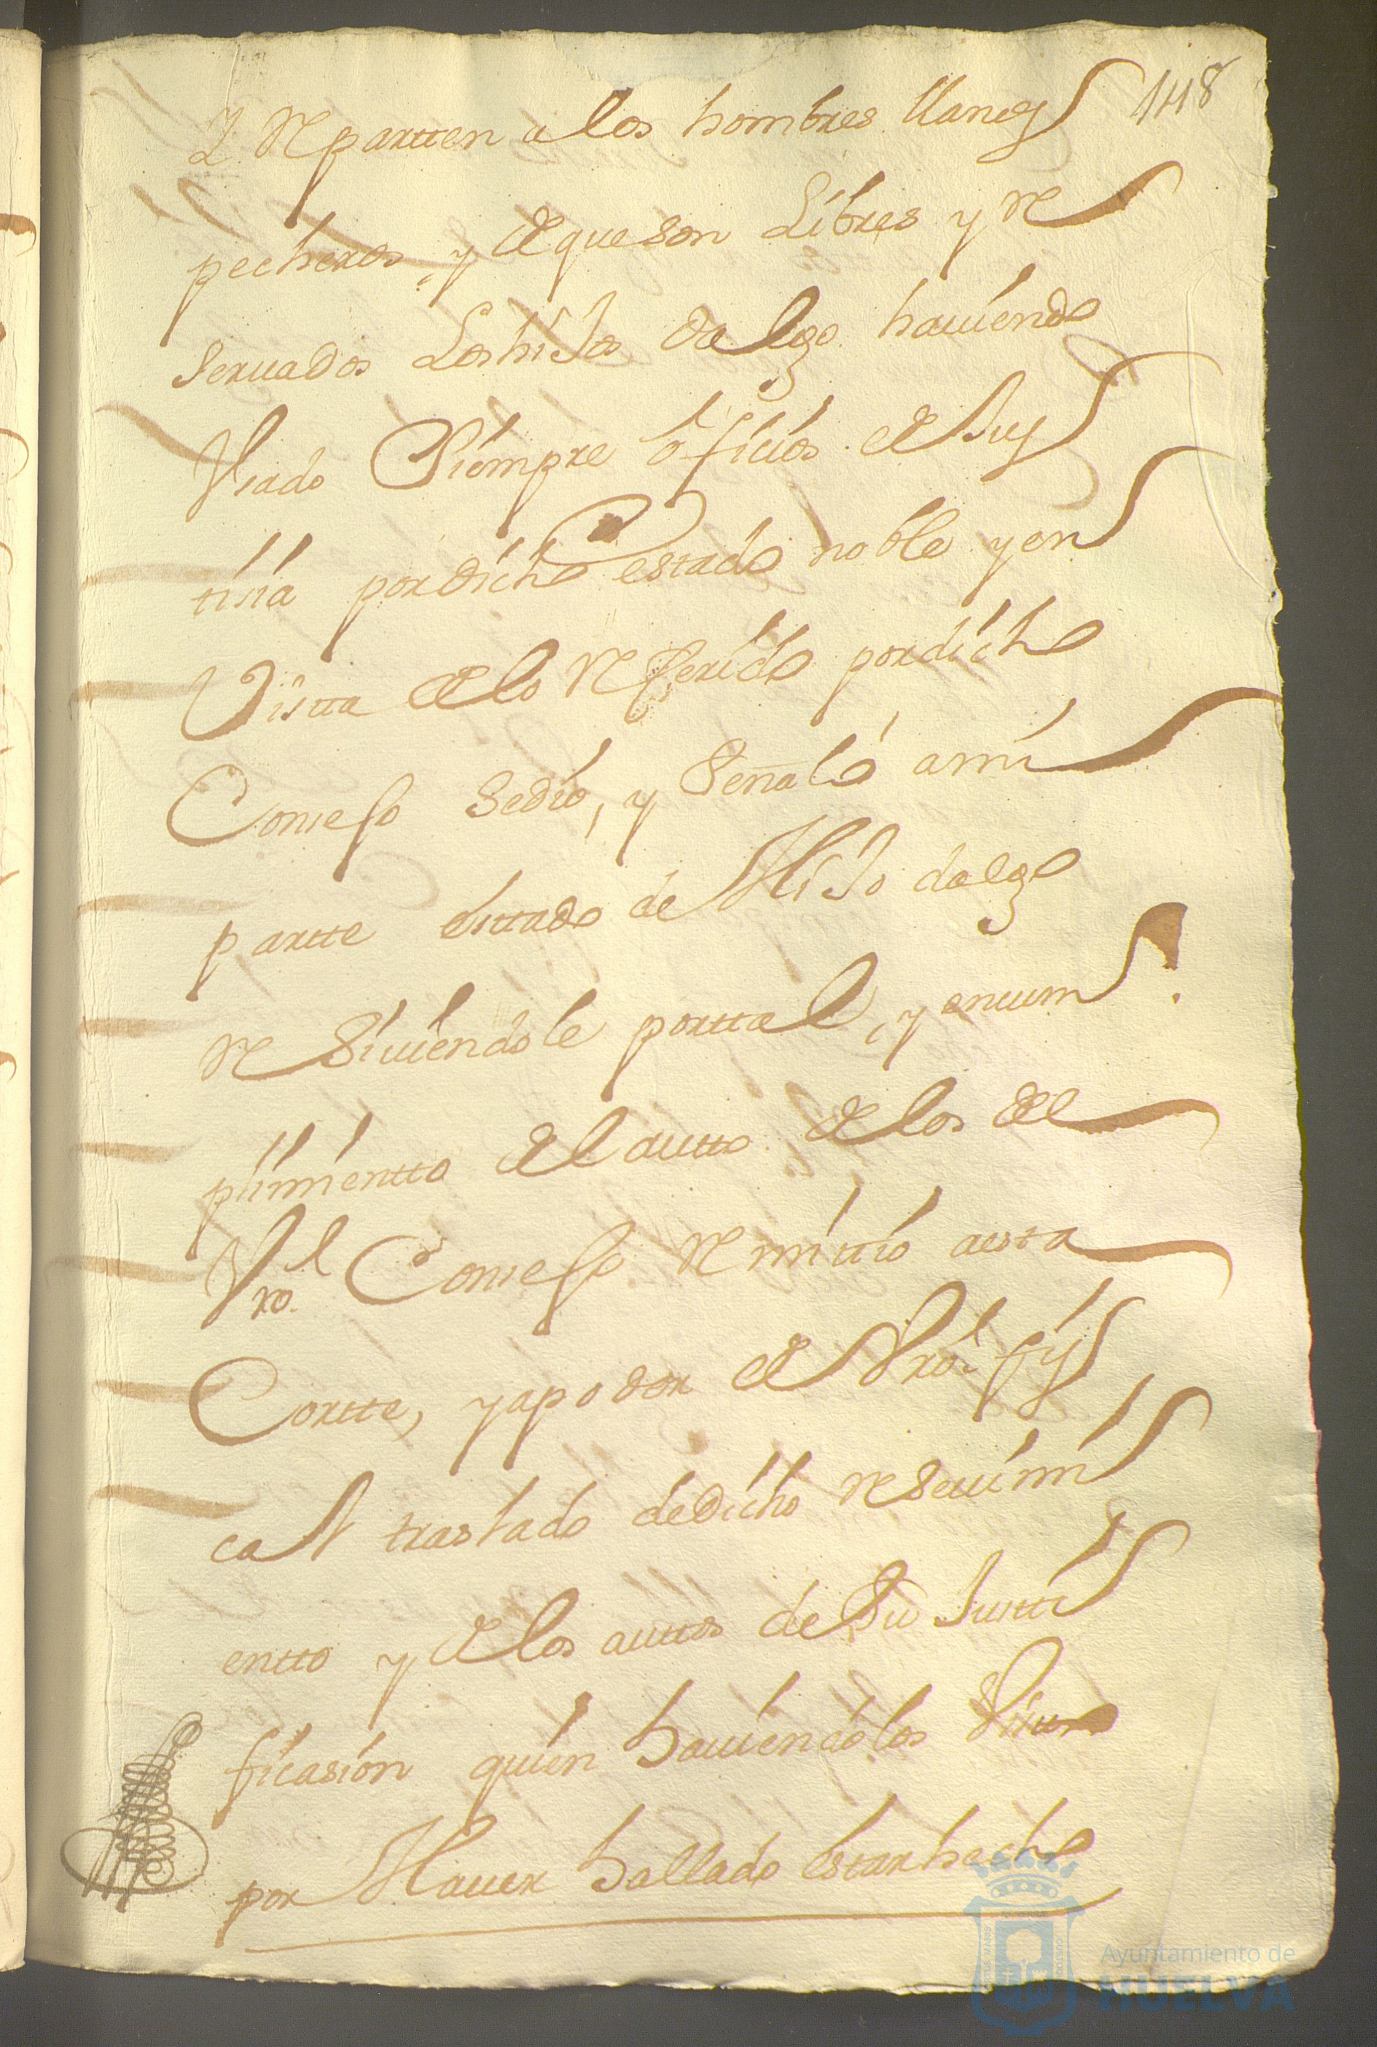 148
Y Repartten a los hombres llanos
pecheros, y de que son Libres y re
servados Los hiJos dalgo haviendo
Usado Siempre oficios de Jus
tisia por dicho estado noble y en
Vistta de lo Referido por dicho
Consejo se dio, y Señaló a mi
partte esttado de HiJo dalgo
Resiviendole por ttal, y en cum
plimientto del autto de los del
Vro. l Consejo Remittió a esta
Cortte, y a poder de Vro. l fis
cal traslado de dicho reseuimi
entto y de los auttos de Su Justti
ficasión quien haviendolos Visto
por Haver hallado estar hecho
Ayuntamiento de
HUELVA